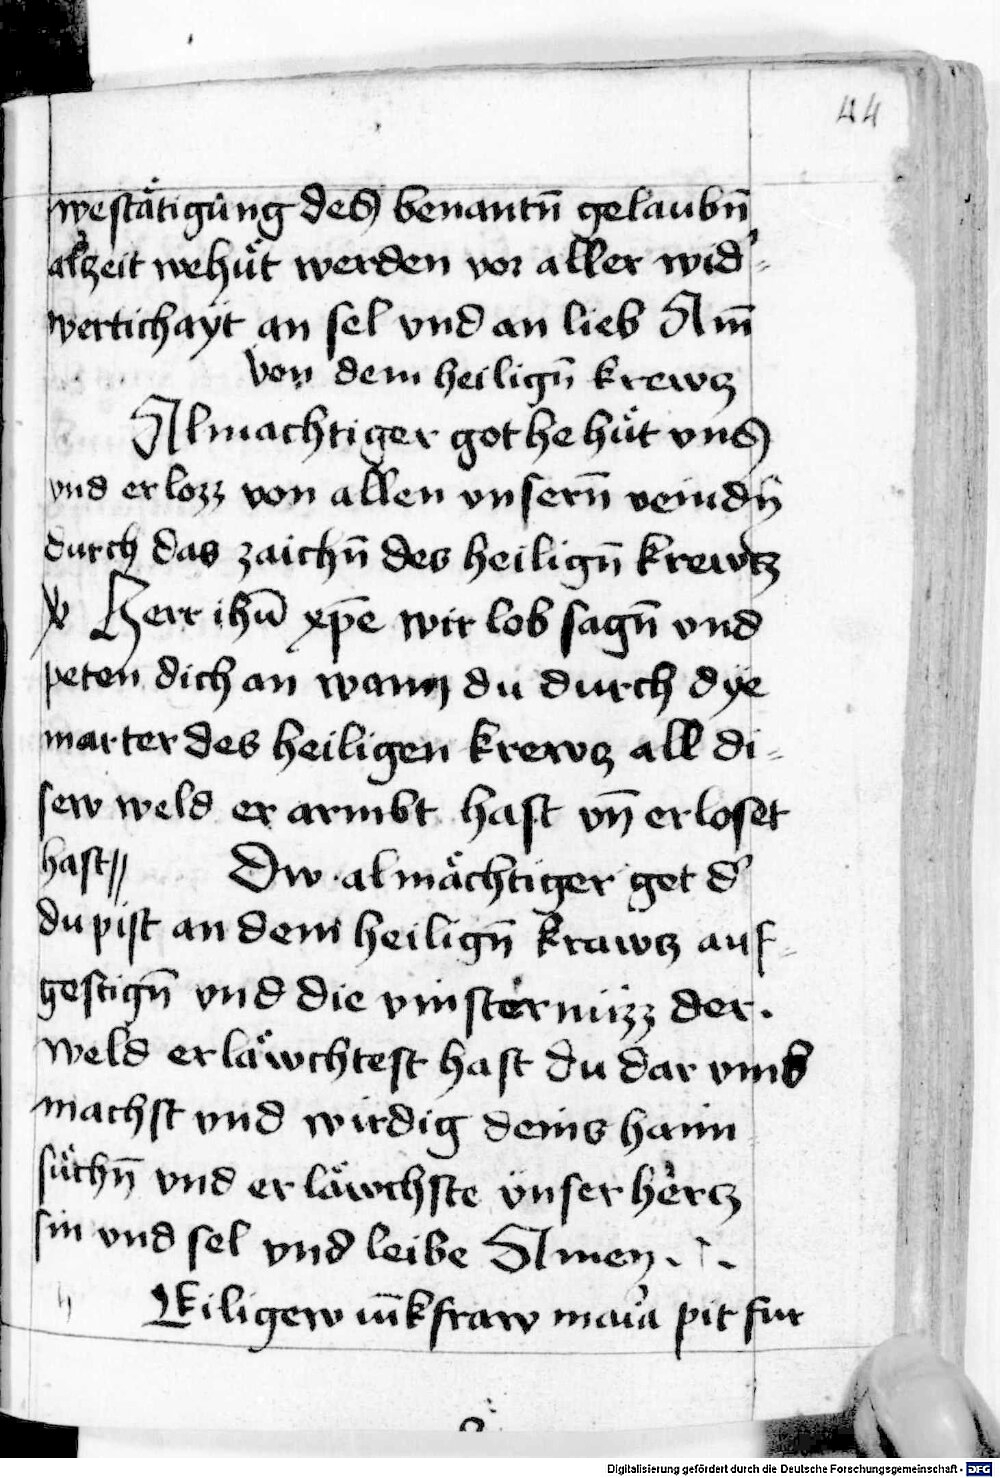 44
westätigung des benantn̄ gelaubn̄
alczeit wehüt werden vor aller wid'-
wertichayt an sel vnd an lieb Am̄
von dem heilign̄ krewcz
Almachtiger got behüt vns
vnd erlozz von allen vnsern̄ veindn̄
durch das zaichn̄ des heilign̄ krewtz
Herr ihū xp̄e wir lob sagn̄ vnd
peten dich an wann du durch dye
marter des heiligen krewcz all di-
sew weld er armbt hast vn̄ erloset
hast// Dw almächtiger get d'
du pist an dem heilign̄ krawcz auf-
gestign̄ vnd die vinsternüzz der.
weld erläwchtest hast du dar vmb
machst vnd wirdig deins haim
süchn̄ vnd erläwchste vnser hercz
sin vnd sel vnd leibe Amen.
Heiligew iūkfraw maria pit fur
Digitalisierung gefördert durch die Deutsche Forschungsgemeinschaft - DFG